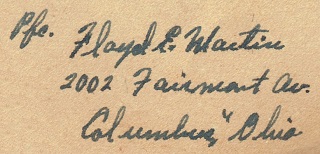 Pfc.
Floyd E. Martin
2002 Fairmont Av.
Columbus," Ohio